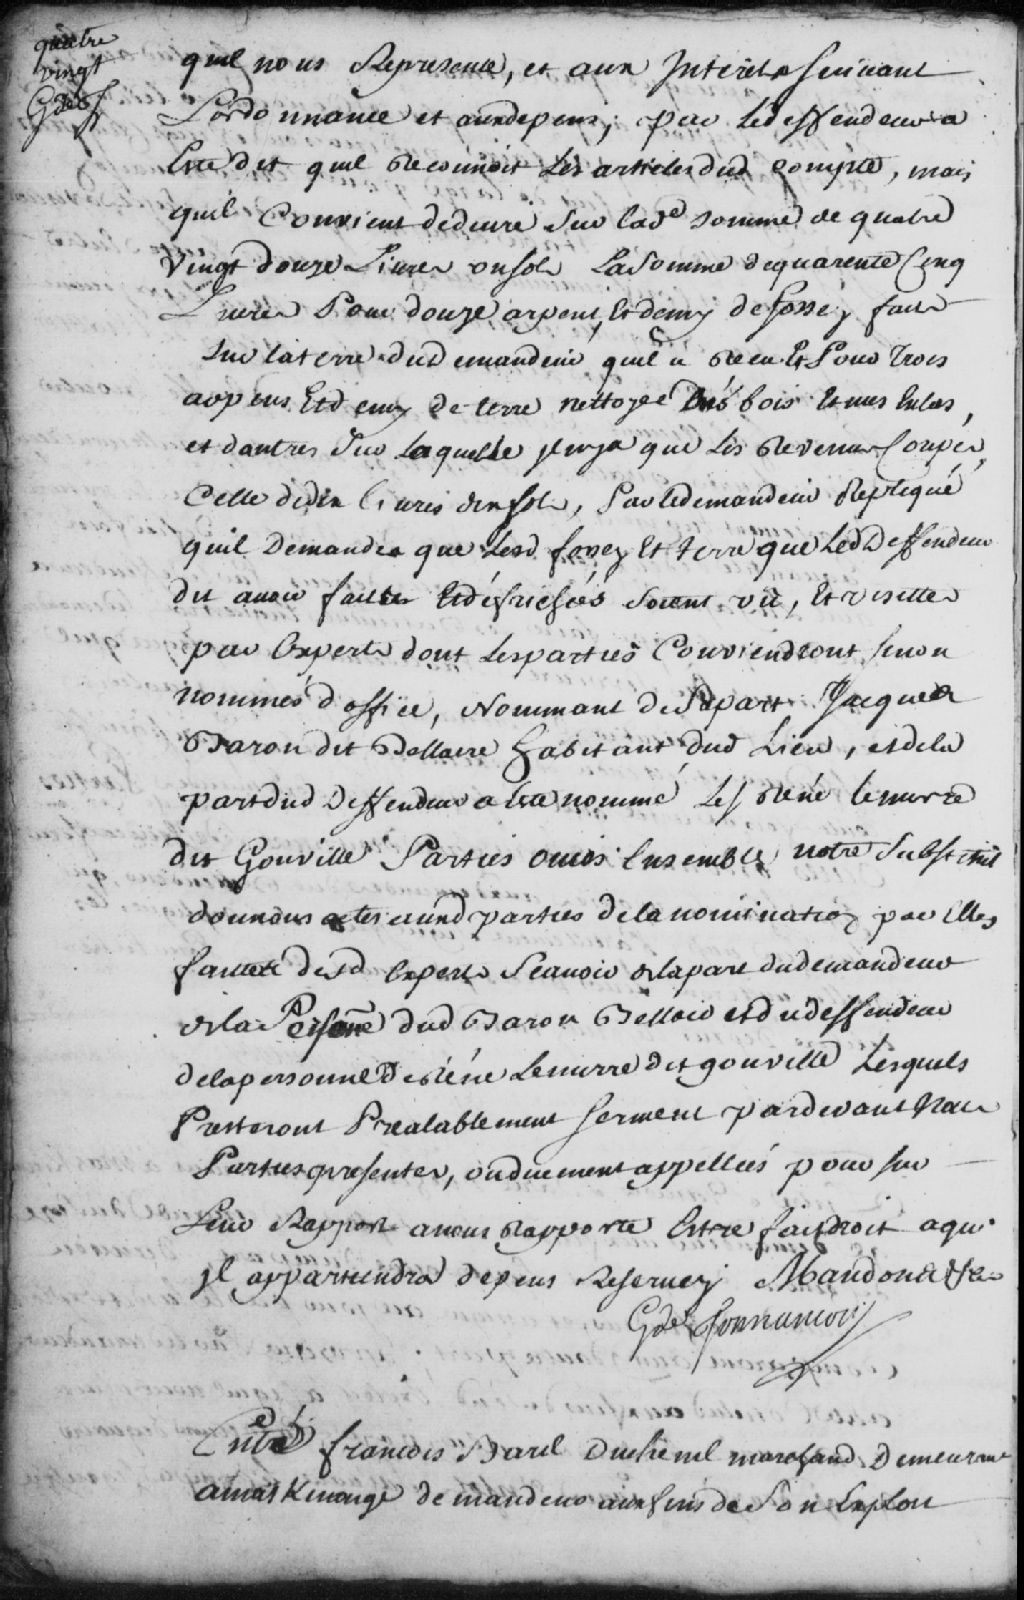 quatre
vingt
quil nous Represente, et aux Jnterets suivant
Lordonnance et aux depens, par Ledeffendeur a
Esté dit quil Reconnoit Les articles dud Compte, mais
quil Convient deduire Sur lade somme de quatre
vingt douze Livres onsols La Somme dequarente Cinq
Livres Pour douze arpens, Et demy de fossez faits
sur la terre dud demandeur quil a Et Pour Trois
arpens Et demy de terre nettoyée bois Et mis En tas,
et dautres Sur Laquelle jl ny a que Les Revenus Coupés,
Celle dedix Livres dix sols, Par Ledemandeur Repliqué
quil Demande que Lesd fossez Et terre que Led Deffendeur
dit avoir faittes Et défrichées soient vû, Et visitter
par Experts dont Les parties Conviendront sinon
nommés d office, Nommant de Sa part Jacques
Baron dit Bellaire habitant dud Lieu, et dela
part dud Deffendeur a Esté nommé Les René lemirre
dit Gouville Parties ouies Ensemble notre Substitut
donnons actes auxd parties de la nomination par Elles
faitte desd Experts Scavoir dela part dudemandeur
dela Personne dud Baron Bellair et dudeffendeur
delapersonne De Réné Lemirre dit gouville Lesquels
Presteront Prealablement serment pardevant Nous
Parties presentes, ou duement appellées pour sur
Leur Rapport a nous Rapporté Estre fait droit a qui
jl appartiendra depens Reservez Mandons &ca
Gde fonnancour
Entre francois Baril Duchenil marchand Demeurant
a maskinongé demandeur aux fins de Son Exploit